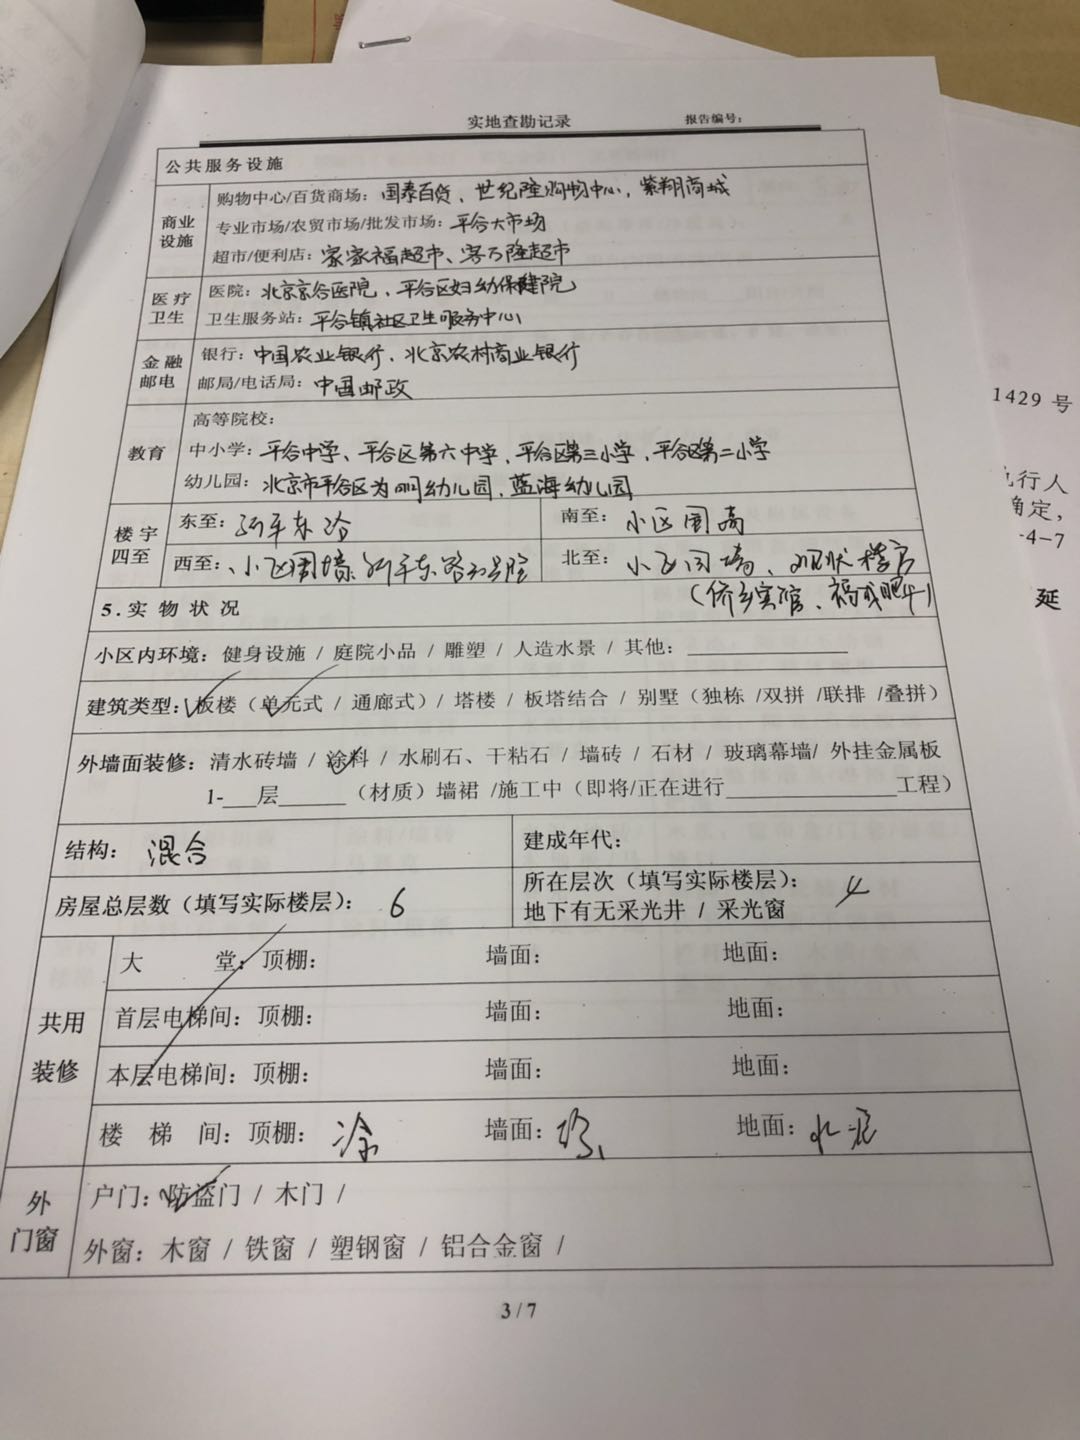 实地查勘记录 报告编号：
公共服务设施
商业设施
购物中心/百货商场：国泰百货、世纪隆购物中心，紫翔商城
专业市场/农贸市场/批发市场：平谷大市场
超市/便利店：家家福超市、客万隆超市
医疗卫生
医院：北京京谷医院、平谷区妇幼保健院
卫生服务站：平谷镇社区卫生服务中心
金融邮电
银行：中国农业银行、北京农村商业银行
邮局/电话局：中国邮政
教育
高等院校：
中小学：平谷中学、平谷区第六中学、平谷区第三小学，平谷区第二小学
幼儿园：北京市平谷区为明幼儿园、蓝海幼儿园
楼宇四至
东至： 南至：小区围
西至：、小区围墙 北至：小区围墙、现状楼
(侨乡宾馆、福成肥牛)
5.实物状况
小区内环境：健身设施 / 庭院小品 / 雕塑 / 人造水景 / 其他：
建筑类型：板楼（单元式 / 通廊式）/ 塔楼 / 板塔结合 / 别墅（独栋 /双拼 /联排 /叠拼）
外墙面装修：清水砖墙 / 涂料 / 水刷石、干粘石 / 墙砖 / 石材 / 玻璃幕墙/ 外挂金属板
1-___层______（材质）墙裙 /施工中（即将/正在进行_______________工程）
结构：混合 建成年代：
房屋总层数（填写实际楼层）：6 所在层次（填写实际楼层）：4
地下有无采光井 / 采光窗
共用装修
大 堂：顶棚： 墙面： 地面：
首层电梯间：顶棚： 墙面： 地面：
本层电梯间：顶棚： 墙面： 地面：
楼 梯 间：顶棚：涂 墙面： 地面：水泥
外门窗
户门：防盗门 / 木门 /
外窗：木窗 / 铁窗 / 塑钢窗 / 铝合金窗 /
3 / 7
1429 号
行人
确定，
-4-7
延